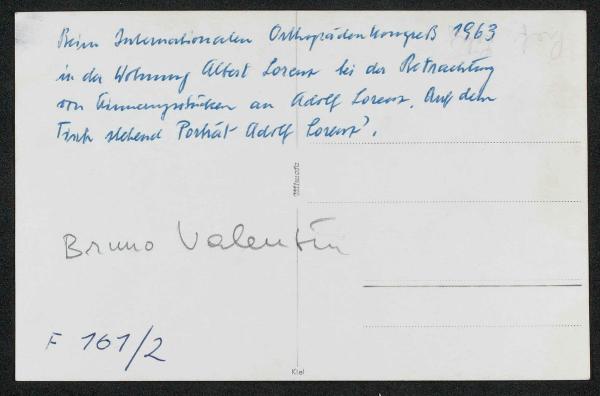 Beim Internationalen Orthopädenkongreß 1963
in der Wohnung Albert Lorenz bei der Betrachtung
von Erinnerungsstücken an Adolf Lorenz. Auf dem
Tisch stehend Porträt Adolf Lorenz'.
Bruno Valentin
F 161/2
Kiel